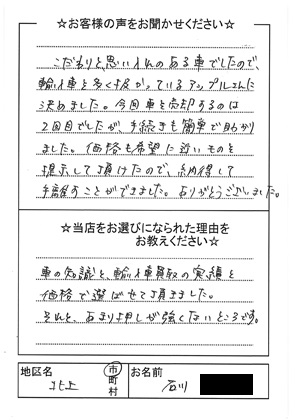 ☆お客様の声をお聞かせください☆
こだわりと思い入れのある車でしたので、
輸入車を多く扱かっているアップルさんに
決めました。今回車を売却するのは
2回目でしたが、手続きも簡単で助かり
ました。価格も希望に近いものを
提示して頂けたので、納得して
手離すことができました。ありがとうございました。
☆当店をお選びになられた理由を
お教えください☆
車の知識と、輸入車買取の実績と
価格で選ばせて頂きました。
それと、あまり押しが強くないところです。
地区名
北上
市
町
村
お名前
石川